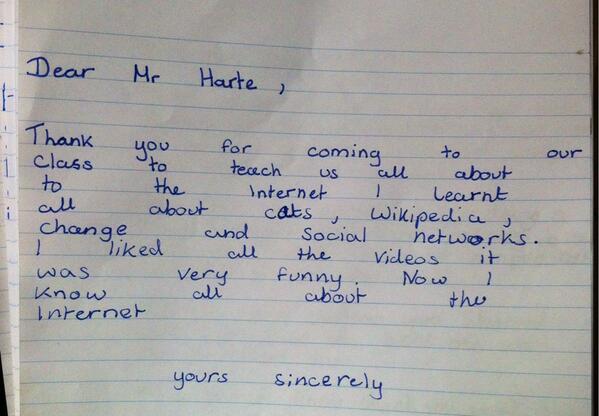 Dear Mr Harte,
Thank you for coming to our
class to teach us all about
to the Internet I learnt
all about cats, Wikipedia,
change and social networks.
I liked all the videos it
was very funny. Now I
know all about the
Internet
yours sincerely